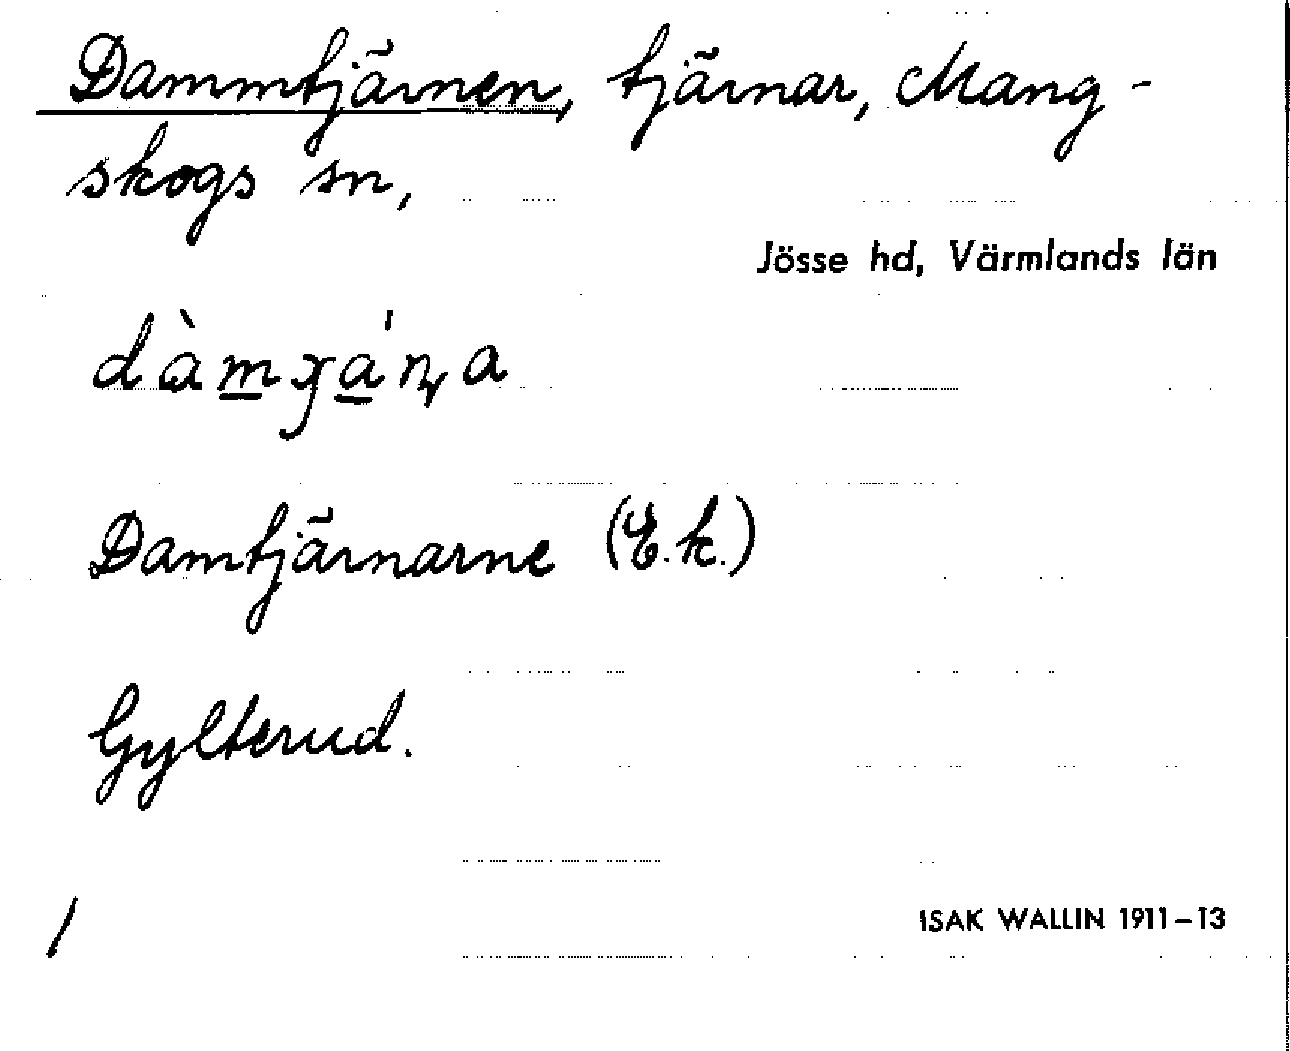 Dammtjärnen, tjärnar, Mang-
skogs sn,
Jösse hd, Värmlands län
Damtjärnarne (E.k.)
Gylterud.
/
ISAK WALLIN 1911–13